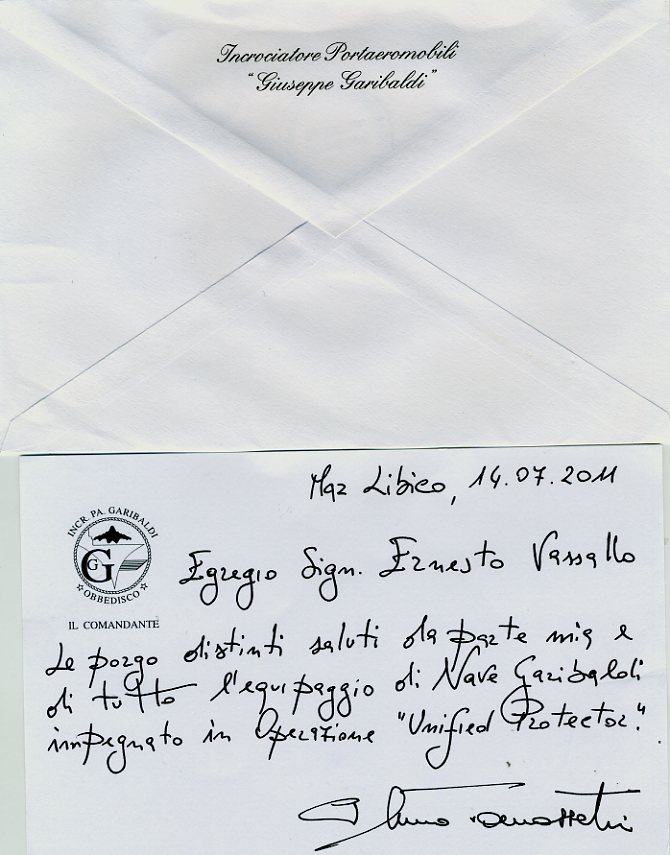 Incrociatore Portaeromobili
"Giuseppe Garibaldi"
Mar Libico, 14.07.2011
INCR. PA. GARIBALDI
G
OBBEDISCO
IL COMANDANTE
Egregio Sign. Ernesto Vassallo
Le porgo distinti saluti da parte mia e
di tutto l'equipaggio di Nave Garibaldi
impegnato in Operazione "Unified Protector".